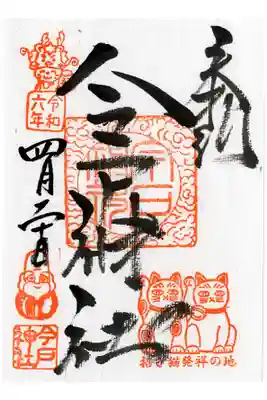 奉拝
今戸神社
令和
六年
四月
今戸
神社
招き猫発祥の地